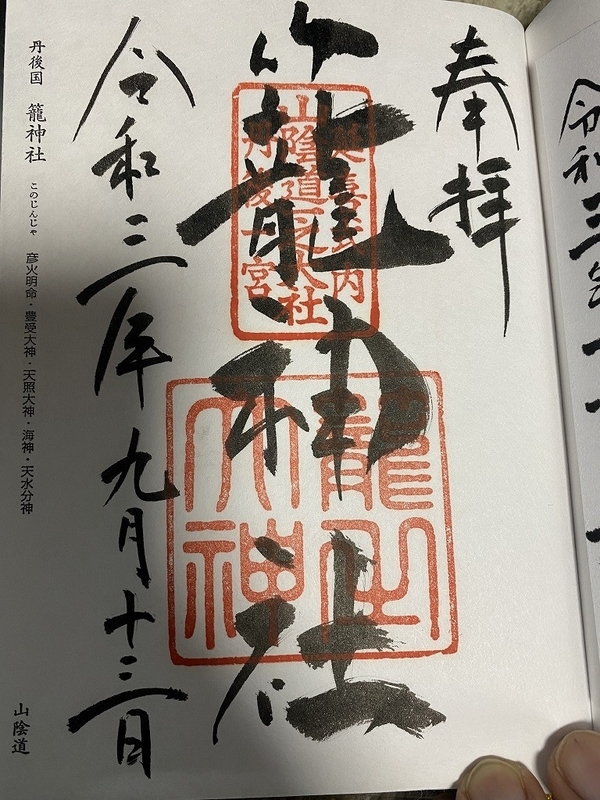 奉拝
籠神社
延喜式内
山陰道一之大社
丹後一宮
籠之
大神
令和三年九月十三日
丹後国 籠神社 このじんじゃ 彦火明命・豊受大神・天照大神・海神・天水分神 山陰道
令和三年